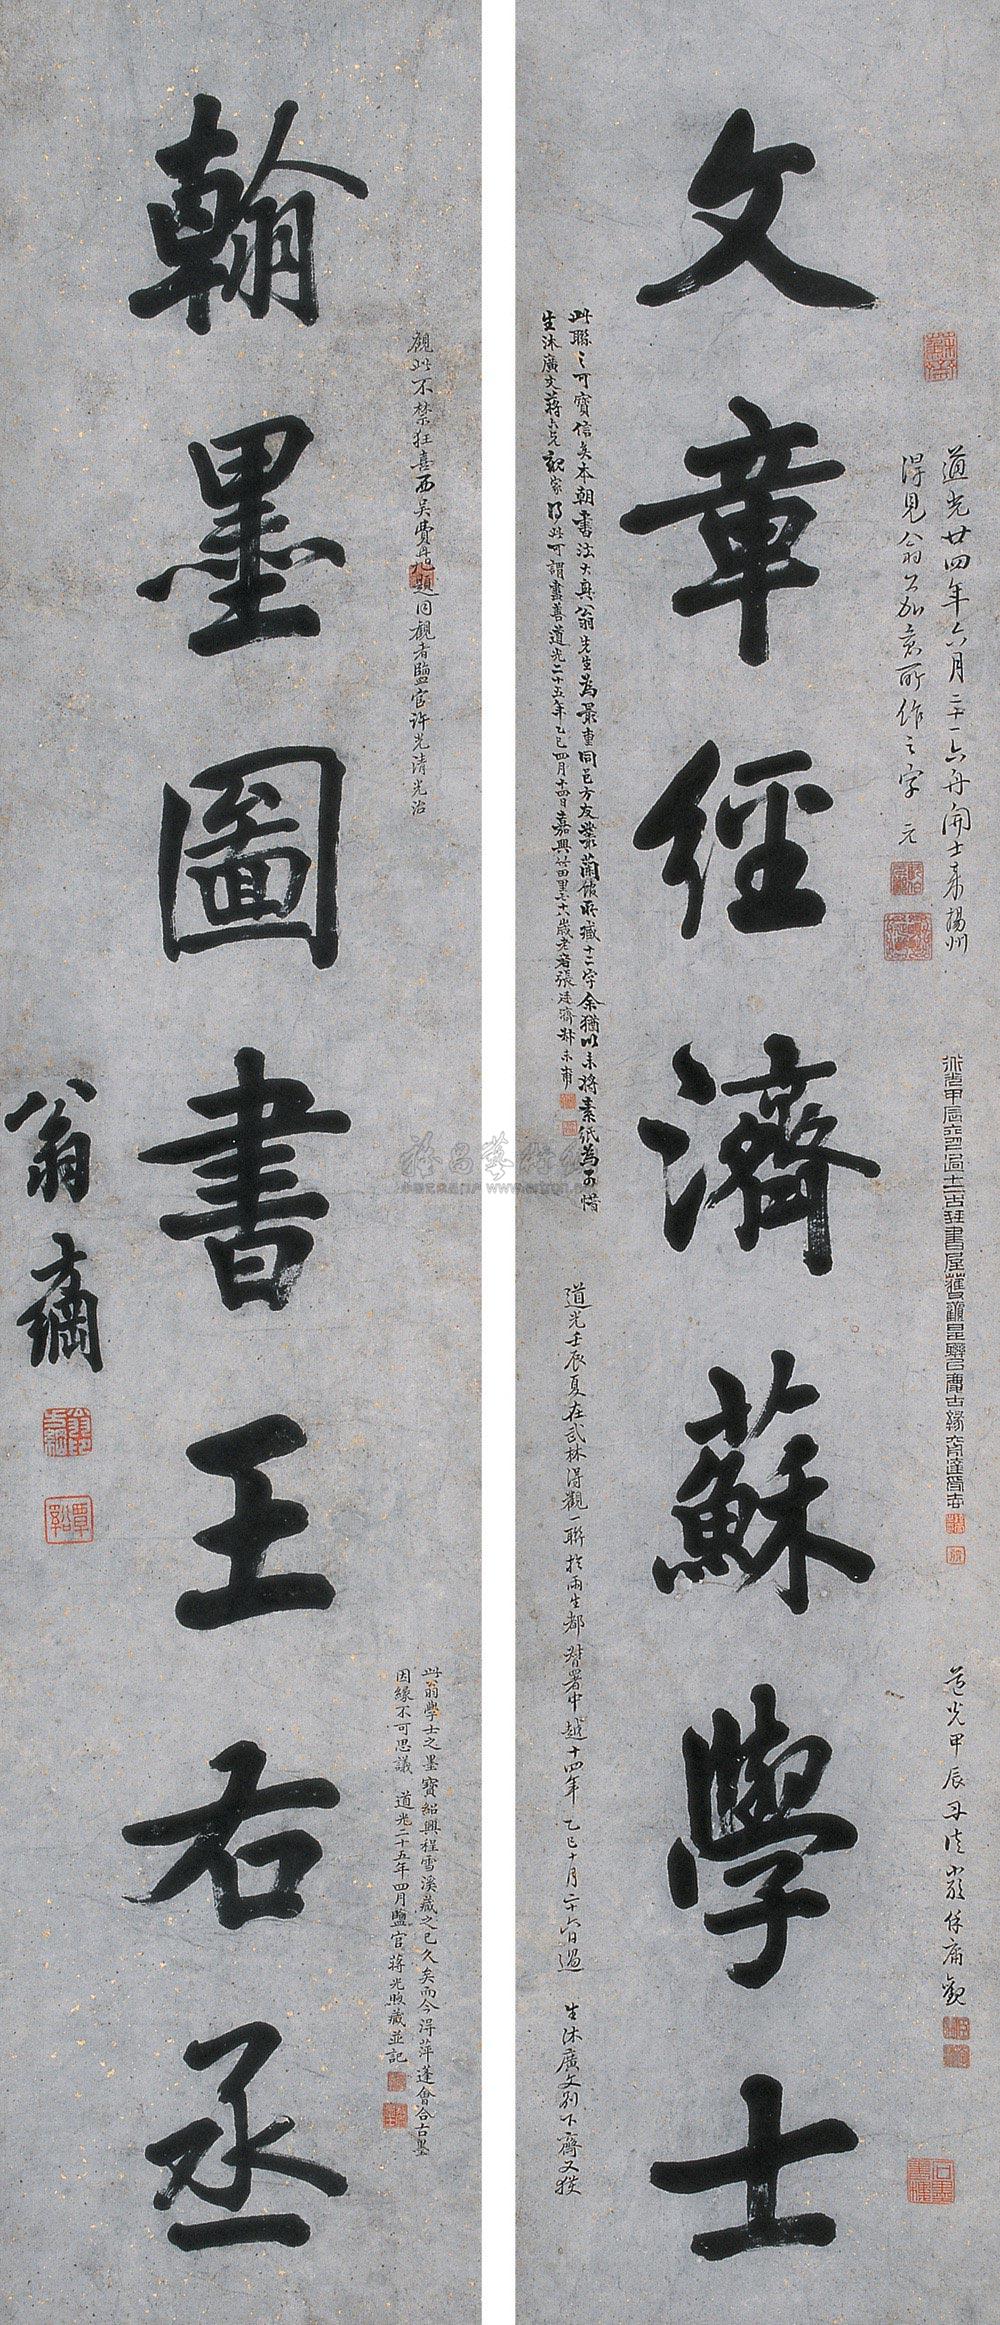 文章經濟蘇學士
道光廿四年六月二十一六舟開士來揚州
得見翁公如意所作之字 元
道光甲辰
觀
此聯之可寶信矣本朝書法大興翁先生為最重同邑方友叢蘭館所藏十二字余猶以未將素紙為可惜
生沐廣文蔣大兄親家得此可謂盡善道光二十五年乙巳四月十四日嘉興竹田里七十八歲老者張廷濟叔未甫
道光壬辰夏在武林得觀一聯於雨生都督署中越十四年乙巳十月二十六日過 生沐廣文別下齋又獲
翰墨圖書王右丞
觀此不禁狂喜西吳費丹旭題同觀者鹽官許光清光治
此翁學士之墨寶紹興程雪溪藏之已久矣而今得萍蓬會合古墨
因緣不可思議 道光二十五年四月鹽官蔣光煦藏並記
翁方綱
翁方綱印
覃谿